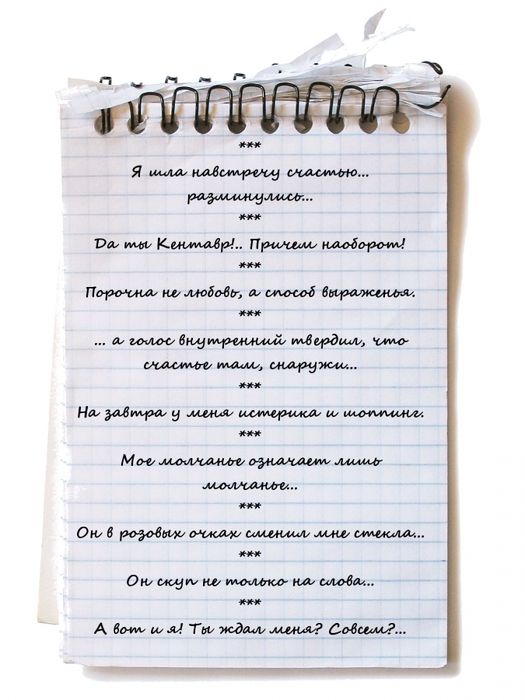 ***
Я шла навстречу счастью...
разминулись...
***
Да ты Кентавр!.. Причем наоборот!
***
Порочна не любовь, а способ выраженья.
***
... а голос внутренний твердил, что
счастье там, снаружи...
***
На завтра у меня истерика и шоппинг.
***
Мое молчанье означает лишь
молчанье...
***
Он в розовых очках сменил мне стекла...
***
Он скуп не только на слова...
***
А вот и я! Ты ждал меня? Совсем?...